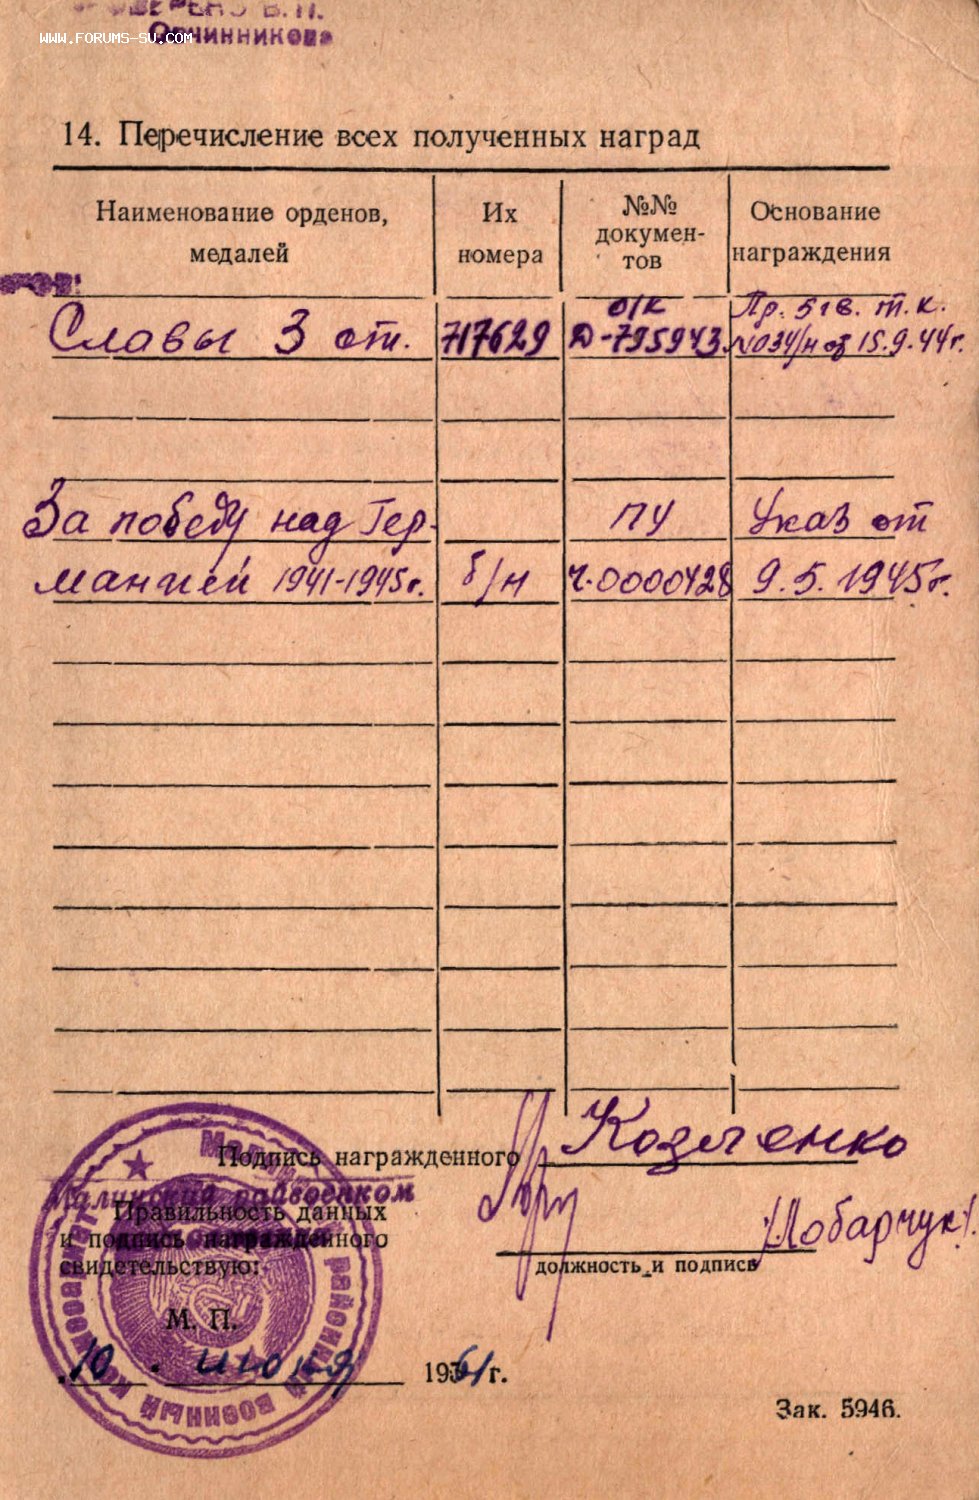 ПРОВЕРЕНО В.П.
Овчинникова
www.forums-su.com
14. Перечисление всех полученных наград
Наименование орденов, медалей
Их номера
№№ докумен-
тов
Основание награждения
Славы 3 ст. 717629 о/к Д-795943 Пр. 5 гв. т. к. №034/н от 15.9.44г.
За победу над Гер- ПУ Указ от
манией 1941-1945г. б/н Ч.0000428 9.5.1945г.
Подпись награжденного Козыченко
Малинский райвоенком
Правильность данных
и подпись награжденного
свидетельствую:
/Лобарчук/.
должность и подпись
М. П.
10 июня 1961г.
Зак. 5946.
районный военный комиссариат